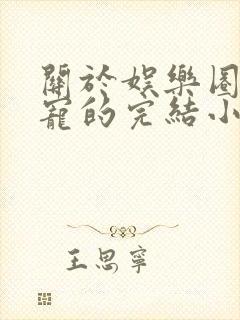 關於娛樂圈
寵的完結小
王思寧